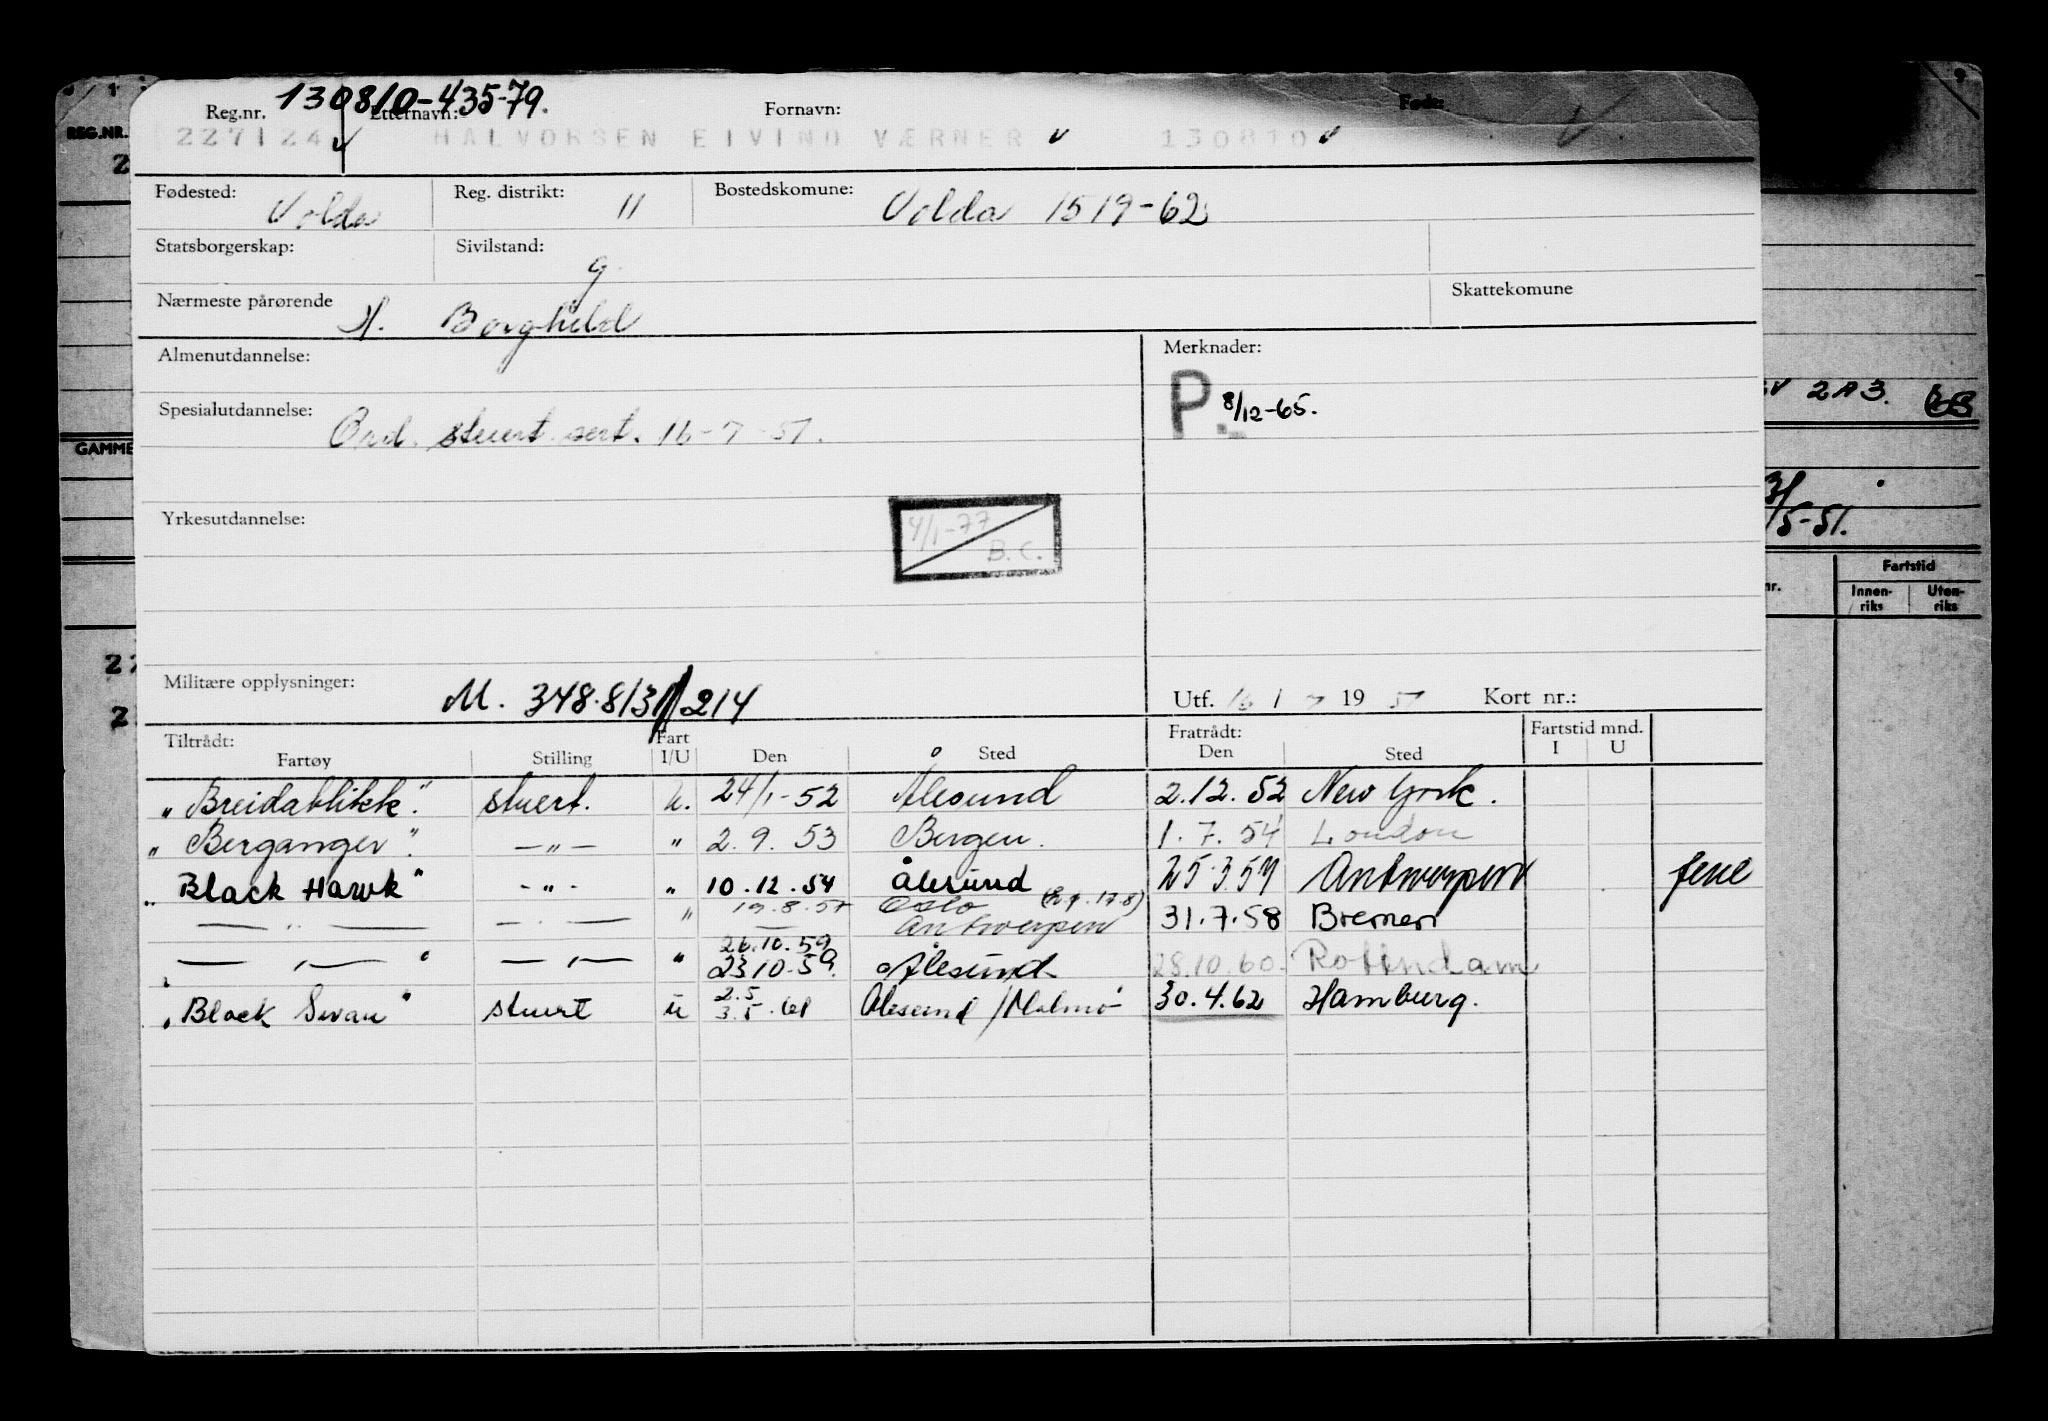 130810-43579.
Reg.nr. Etternavn: Fornavn: Født:
227124 HALVORSEN EIVIND VÆRNER 130810
REG.NR.
Fødested: Volda Reg. distrikt: 11 Bostedskomune: Volda 1519-62
Statsborgerskap: Sivilstand: g
Nærmeste pårørende H. Borghild Skattekomune
Almenutdannelse: Merknader:
P. 8/12-65.
2A3.
Spesialutdannelse: Ord. stuert sert. 16-7-51.
GAMME
5-51.
Yrkesutdannelse: 4/1-77 B.C.
Fartstid
Innen-riks Uten-riks
Militære opplysninger: M. 348.8/31/214 Utf. 16/7 1951 Kort nr.:
Tiltrådt: Fart Fratrådt: Fartstid mnd.
Fartøy Stilling I/U Den Sted Den Sted I U
"Breidablikk". stuert. u. 24/1-52 Ålesund 2.12.52 New York.
"Berganger". -"- " 2.9.53 Bergen. 1.7.54 London
"Black Hawk" -"- " 10.12.54 Ålesund 25.3.57 Antwerpen ferie
— " — — " — " 19.8.57 Oslo Antwerpen 31.7.58 Bremen
— " — — " — " 26.10.59 23.10.59. Ålesund 28.10.60. Rotterdam
"Black Swan" stuert u 2.5 3.5.61 Ålesund/Malmø 30.4.62 Hamburg.